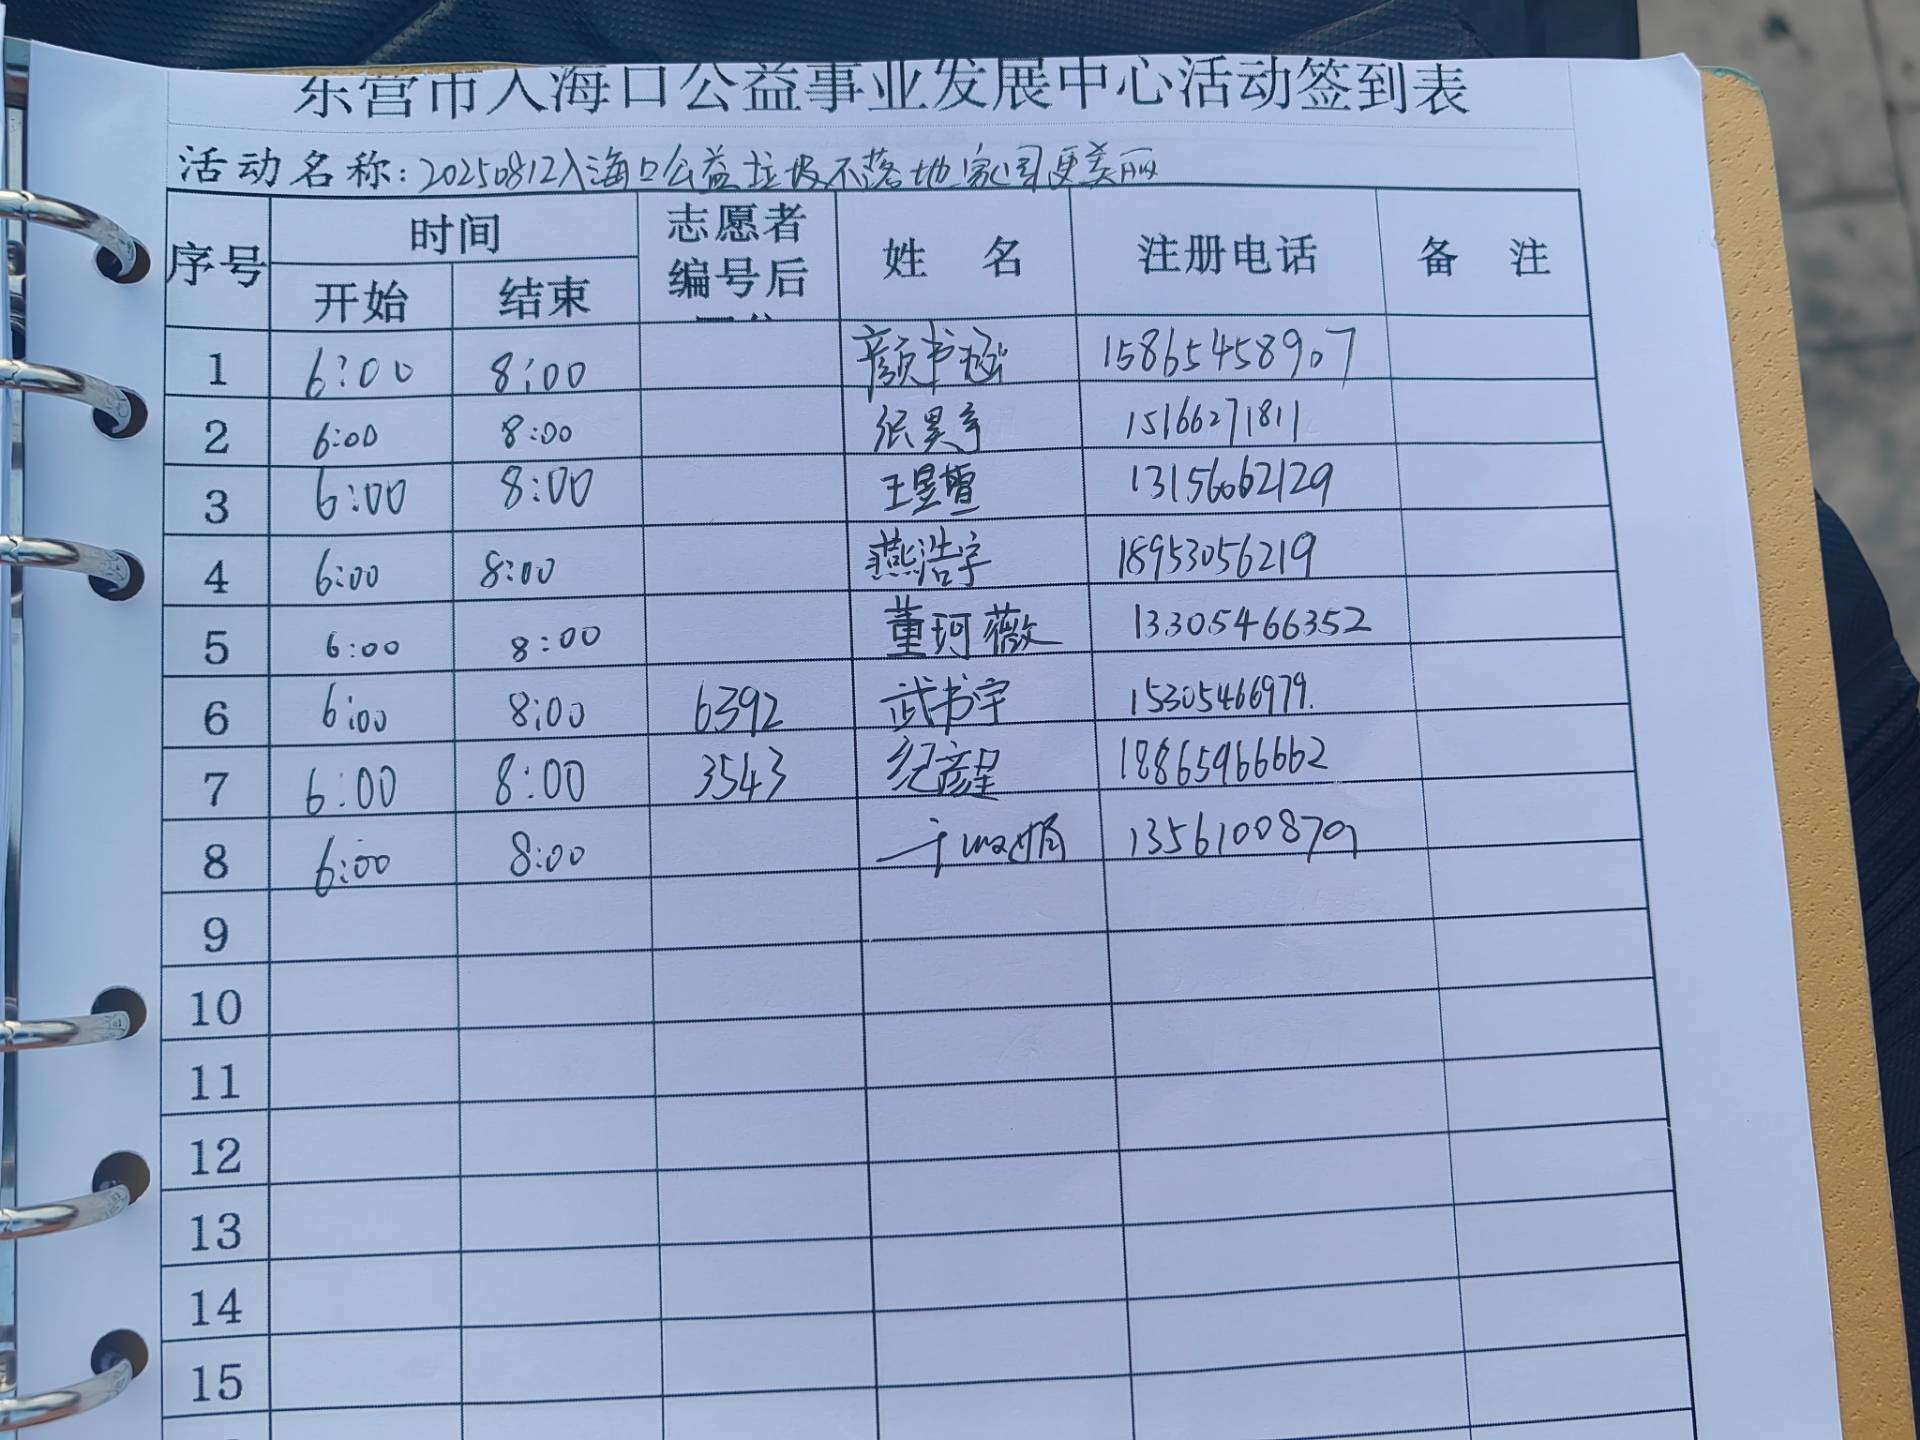 东营市入海口公益事业发展中心活动签到表
活动名称：20250812入海口公益垃圾不落地家园更美丽
序号 时间 志愿者编号后 姓 名 注册电话 备 注
开始 结束
1 6:00 8:00 颜书涵 15865458907
2 6:00 8:00 张昊宇 15166271811
3 6:00 8:00 王昱萱 13156062129
4 6:00 8:00 燕浩宇 18953056219
5 6:00 8:00 董珂薇 13305466352
6 6:00 8:00 6392 武书宇 15305466979.
7 6:00 8:00 3543 纪彦呈 18865966662
8 6:00 8:00 13561008709
9
10
11
12
13
14
15